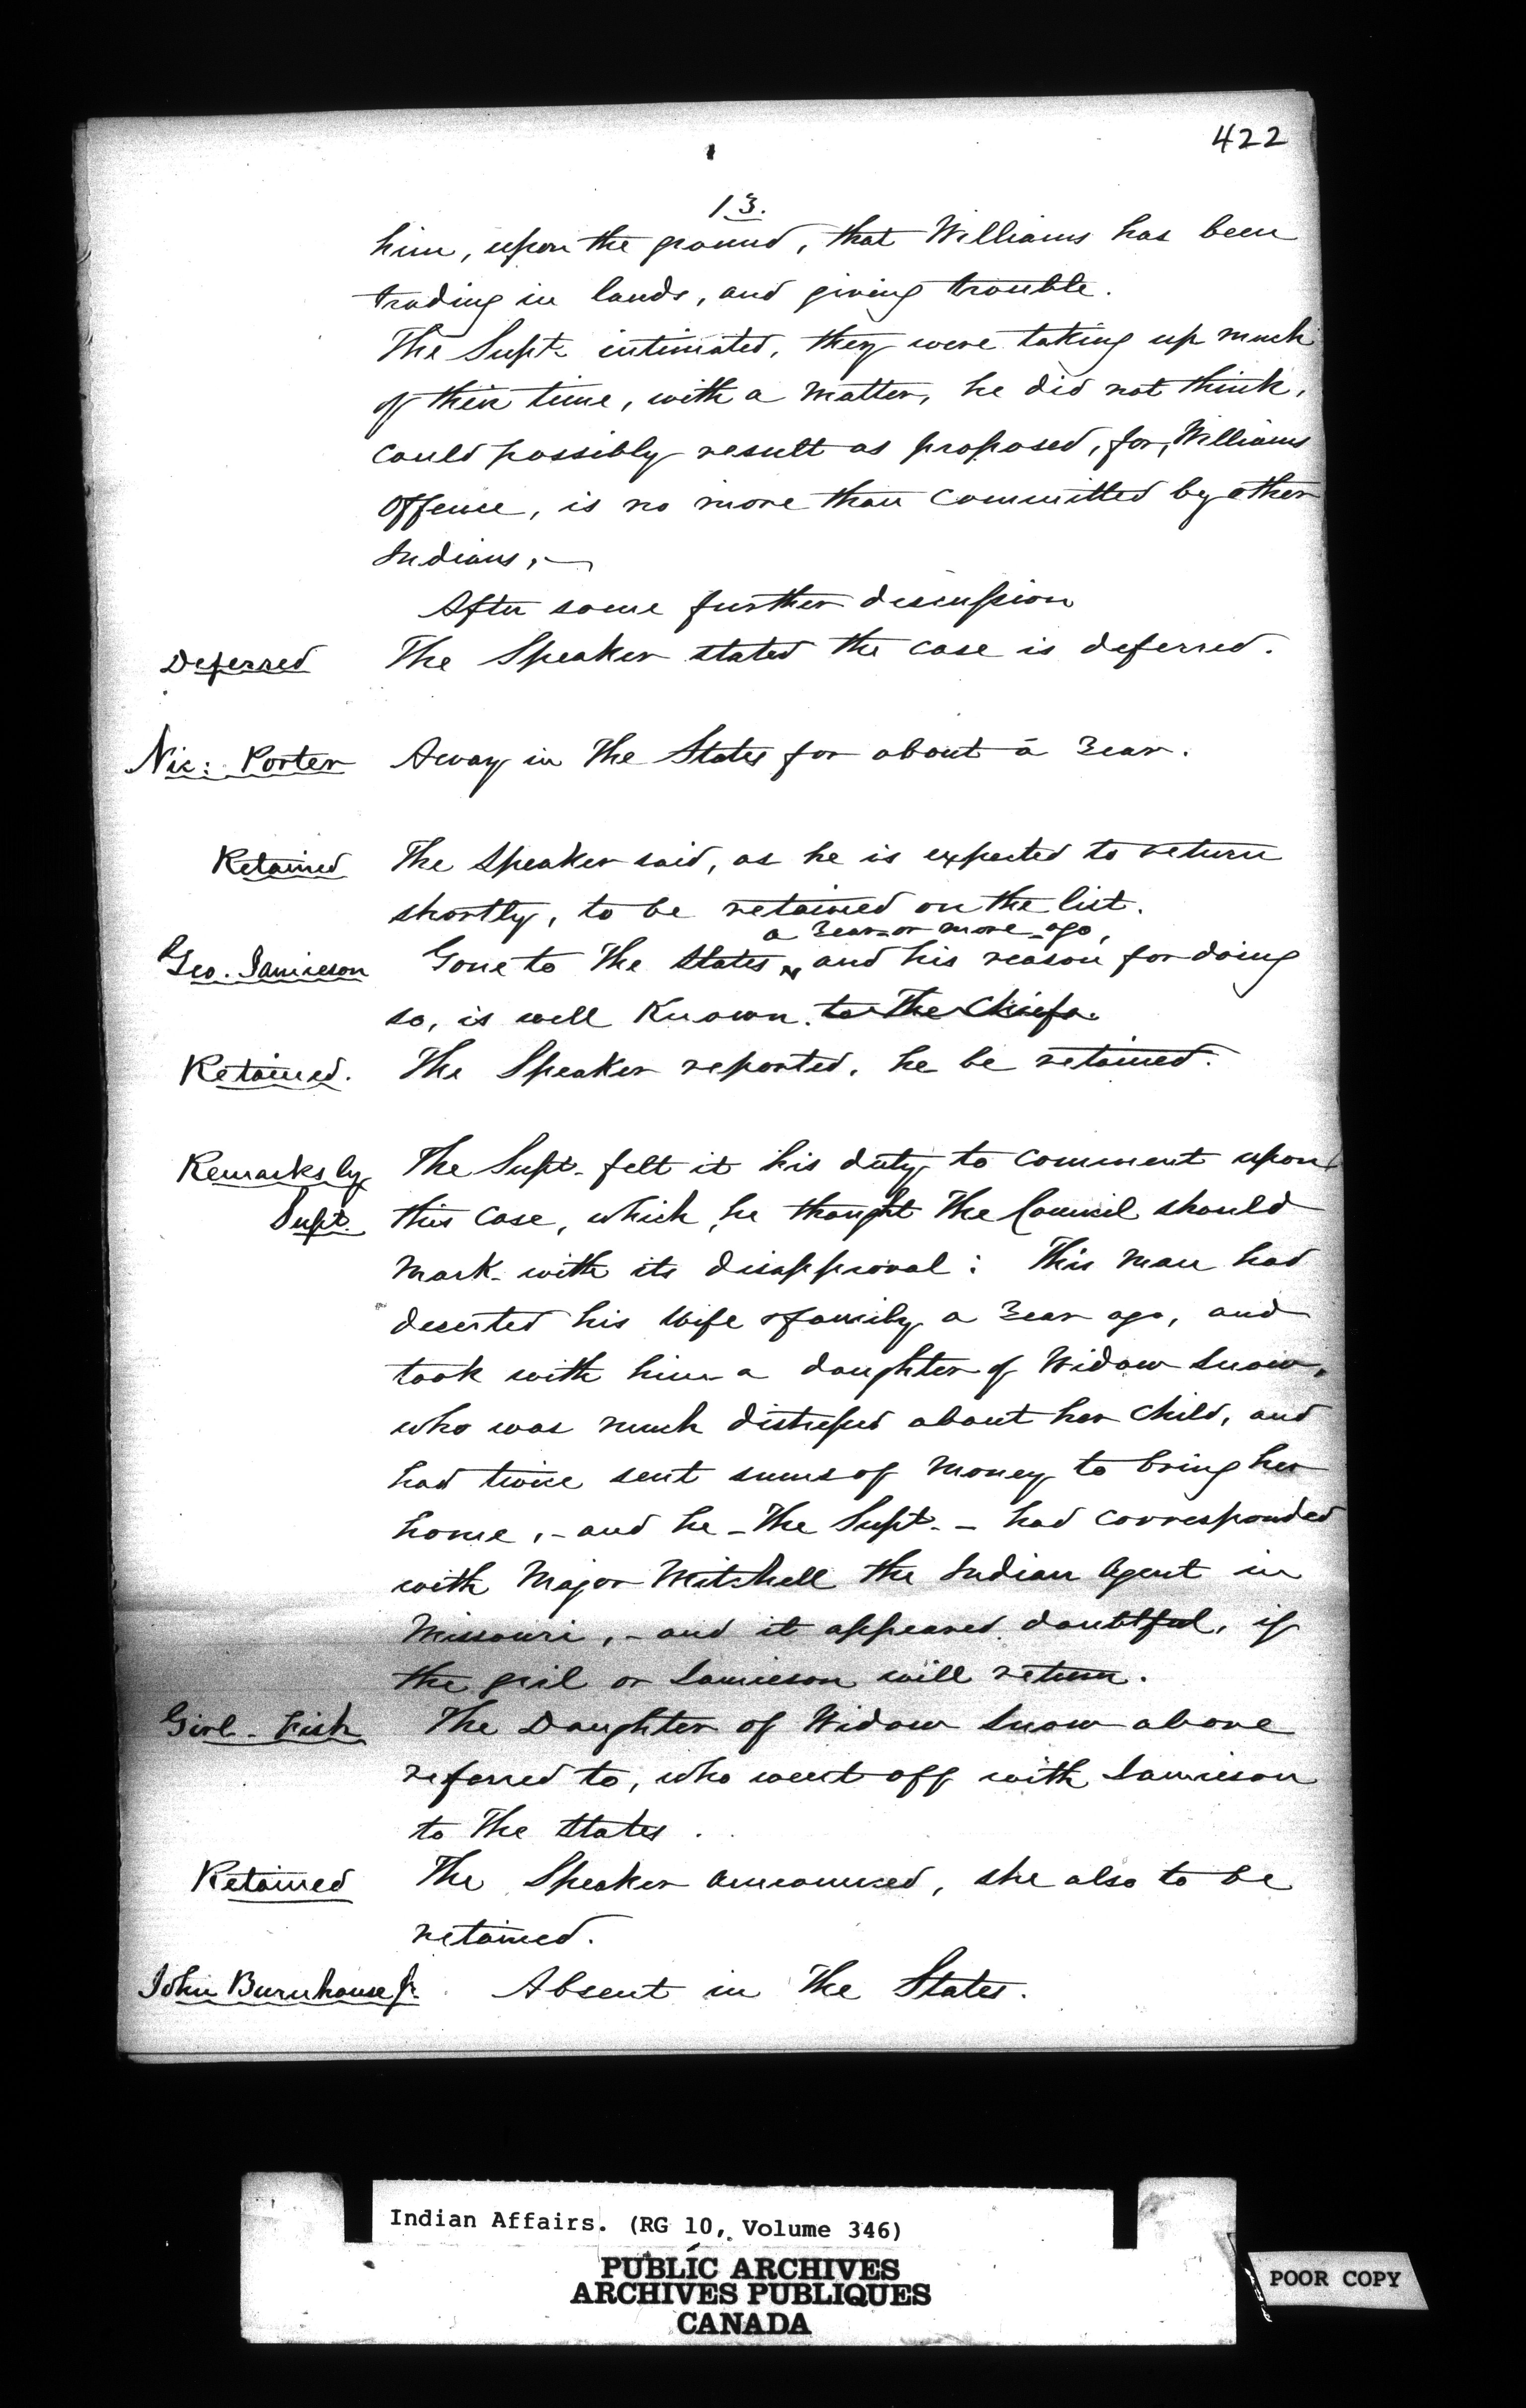 422
13.
him, upon the ground, that Williams has been
trading in lands, and giving trouble.
The Supt. intimated, they were taking up much
of their time, with a matter, he did not think,
could possibly result as proposed, for, Williams
offence, is no more than committed by other
Indians, —
After some further discussion
Deferred The Speaker stated the case is deferred.
Nic: Porter Away in The States for about a Year.
Retained The Speaker said, as he is expected to return
shortly, to be retained on the list.
a Year or more ago,
Geo. Jamieson Gone to The States, and his reason for doing
so, is well Known. to The Chiefs.
Retained. The Speaker reported, he be retained.
Remarks by The Supt. felt it his duty to comment upon
Supt. this case, which, he thought The Council should
mark with its disapproval: This man had
deserted his wife & family a Year ago, and
took with him a daughter of Widow Snow,
who was much distressed about her child, and
had twice sent sums of money to bring her
home, - and he - The Supt. - had corresponded
with Major Mitchell the Indian Agent in
Missouri, - and it appeared doubtful, if
the girl or Jamieson will return.
Girl - Fish The Daughter of Widow Snow above
referred to, who went off with Jamieson
to The States.
Retained The Speaker announced, she also to be
retained.
John Burnhouse Jr. Absent in The States.
Indian Affairs. (RG 10, Volume 346)
PUBLIC ARCHIVES
ARCHIVES PUBLIQUES
CANADA
POOR COPY